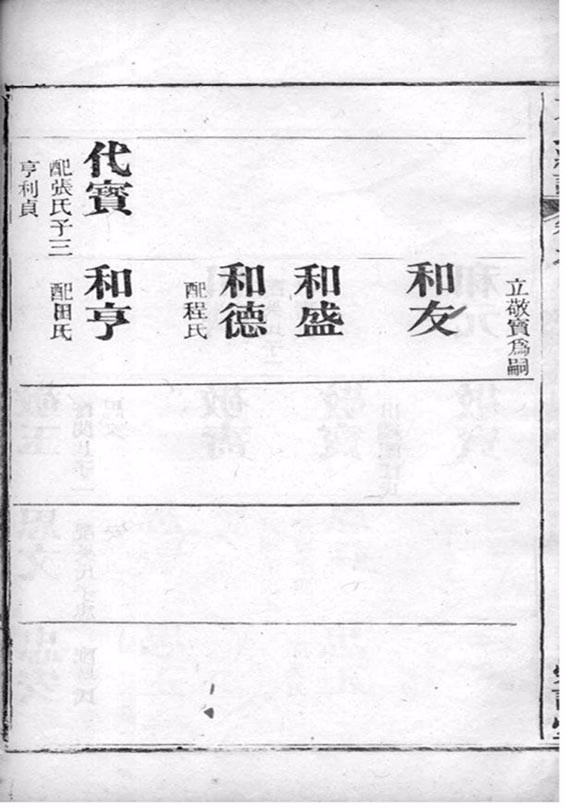 立敬寶為嗣
和友
和盛
和德
配程氏
代寶
配張氏子三
亨利貞
和亨
配田氏